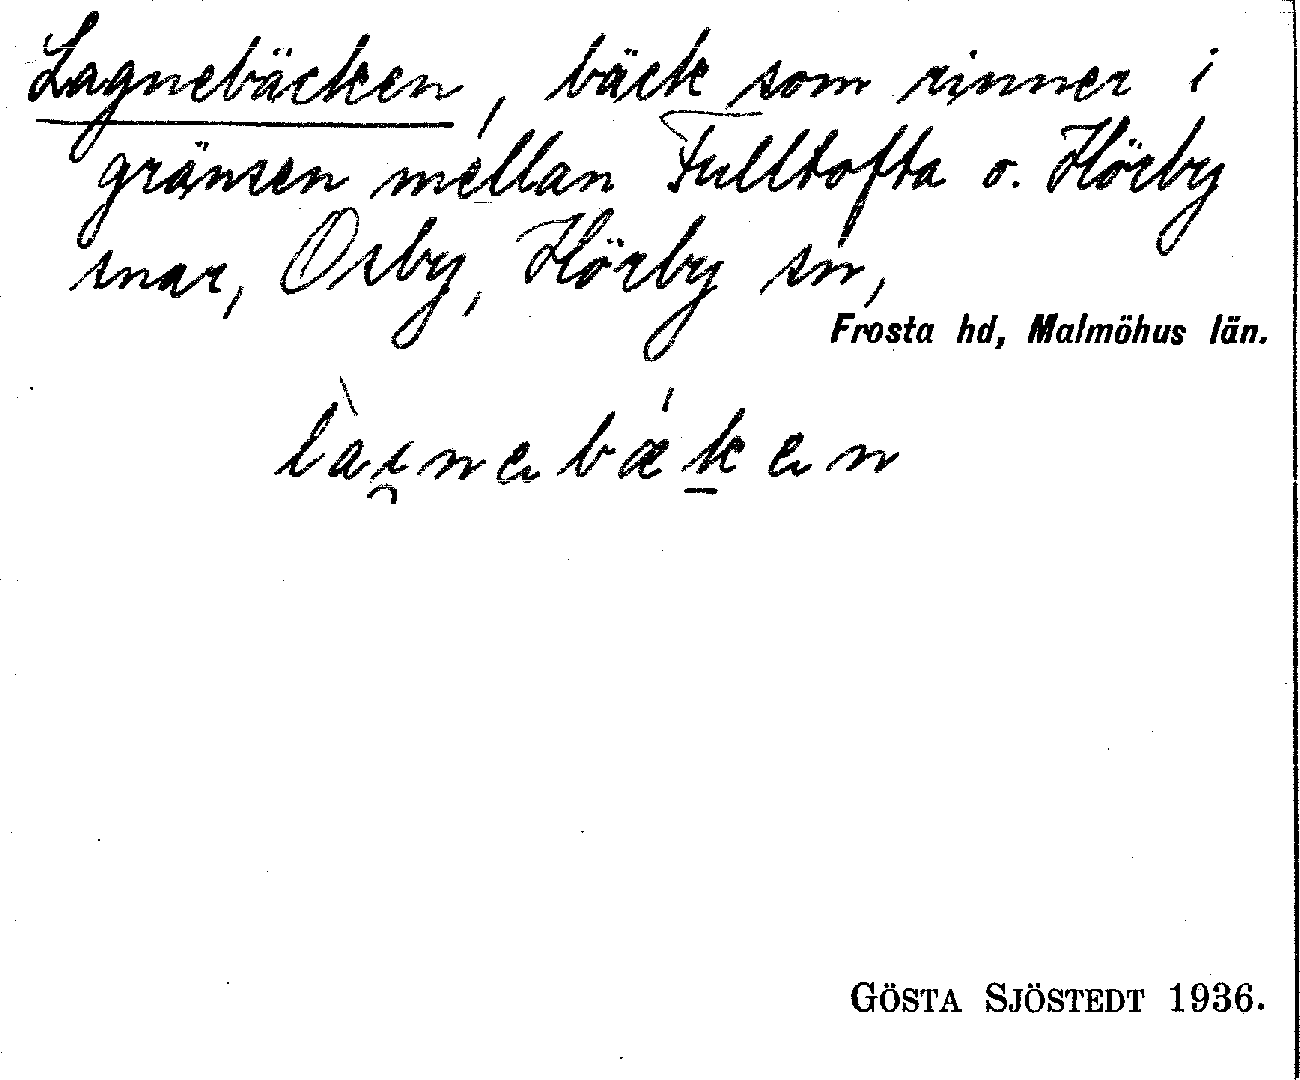 Lagnebäcken, bäck som rinner i
gränsen mellan Fulltofta o. Hörby
snar, Osby, Hörby sn,
Frosta hd, Malmöhus län.
lài̯nebǽk̠en
GÖSTA SJÖSTEDT 1936.